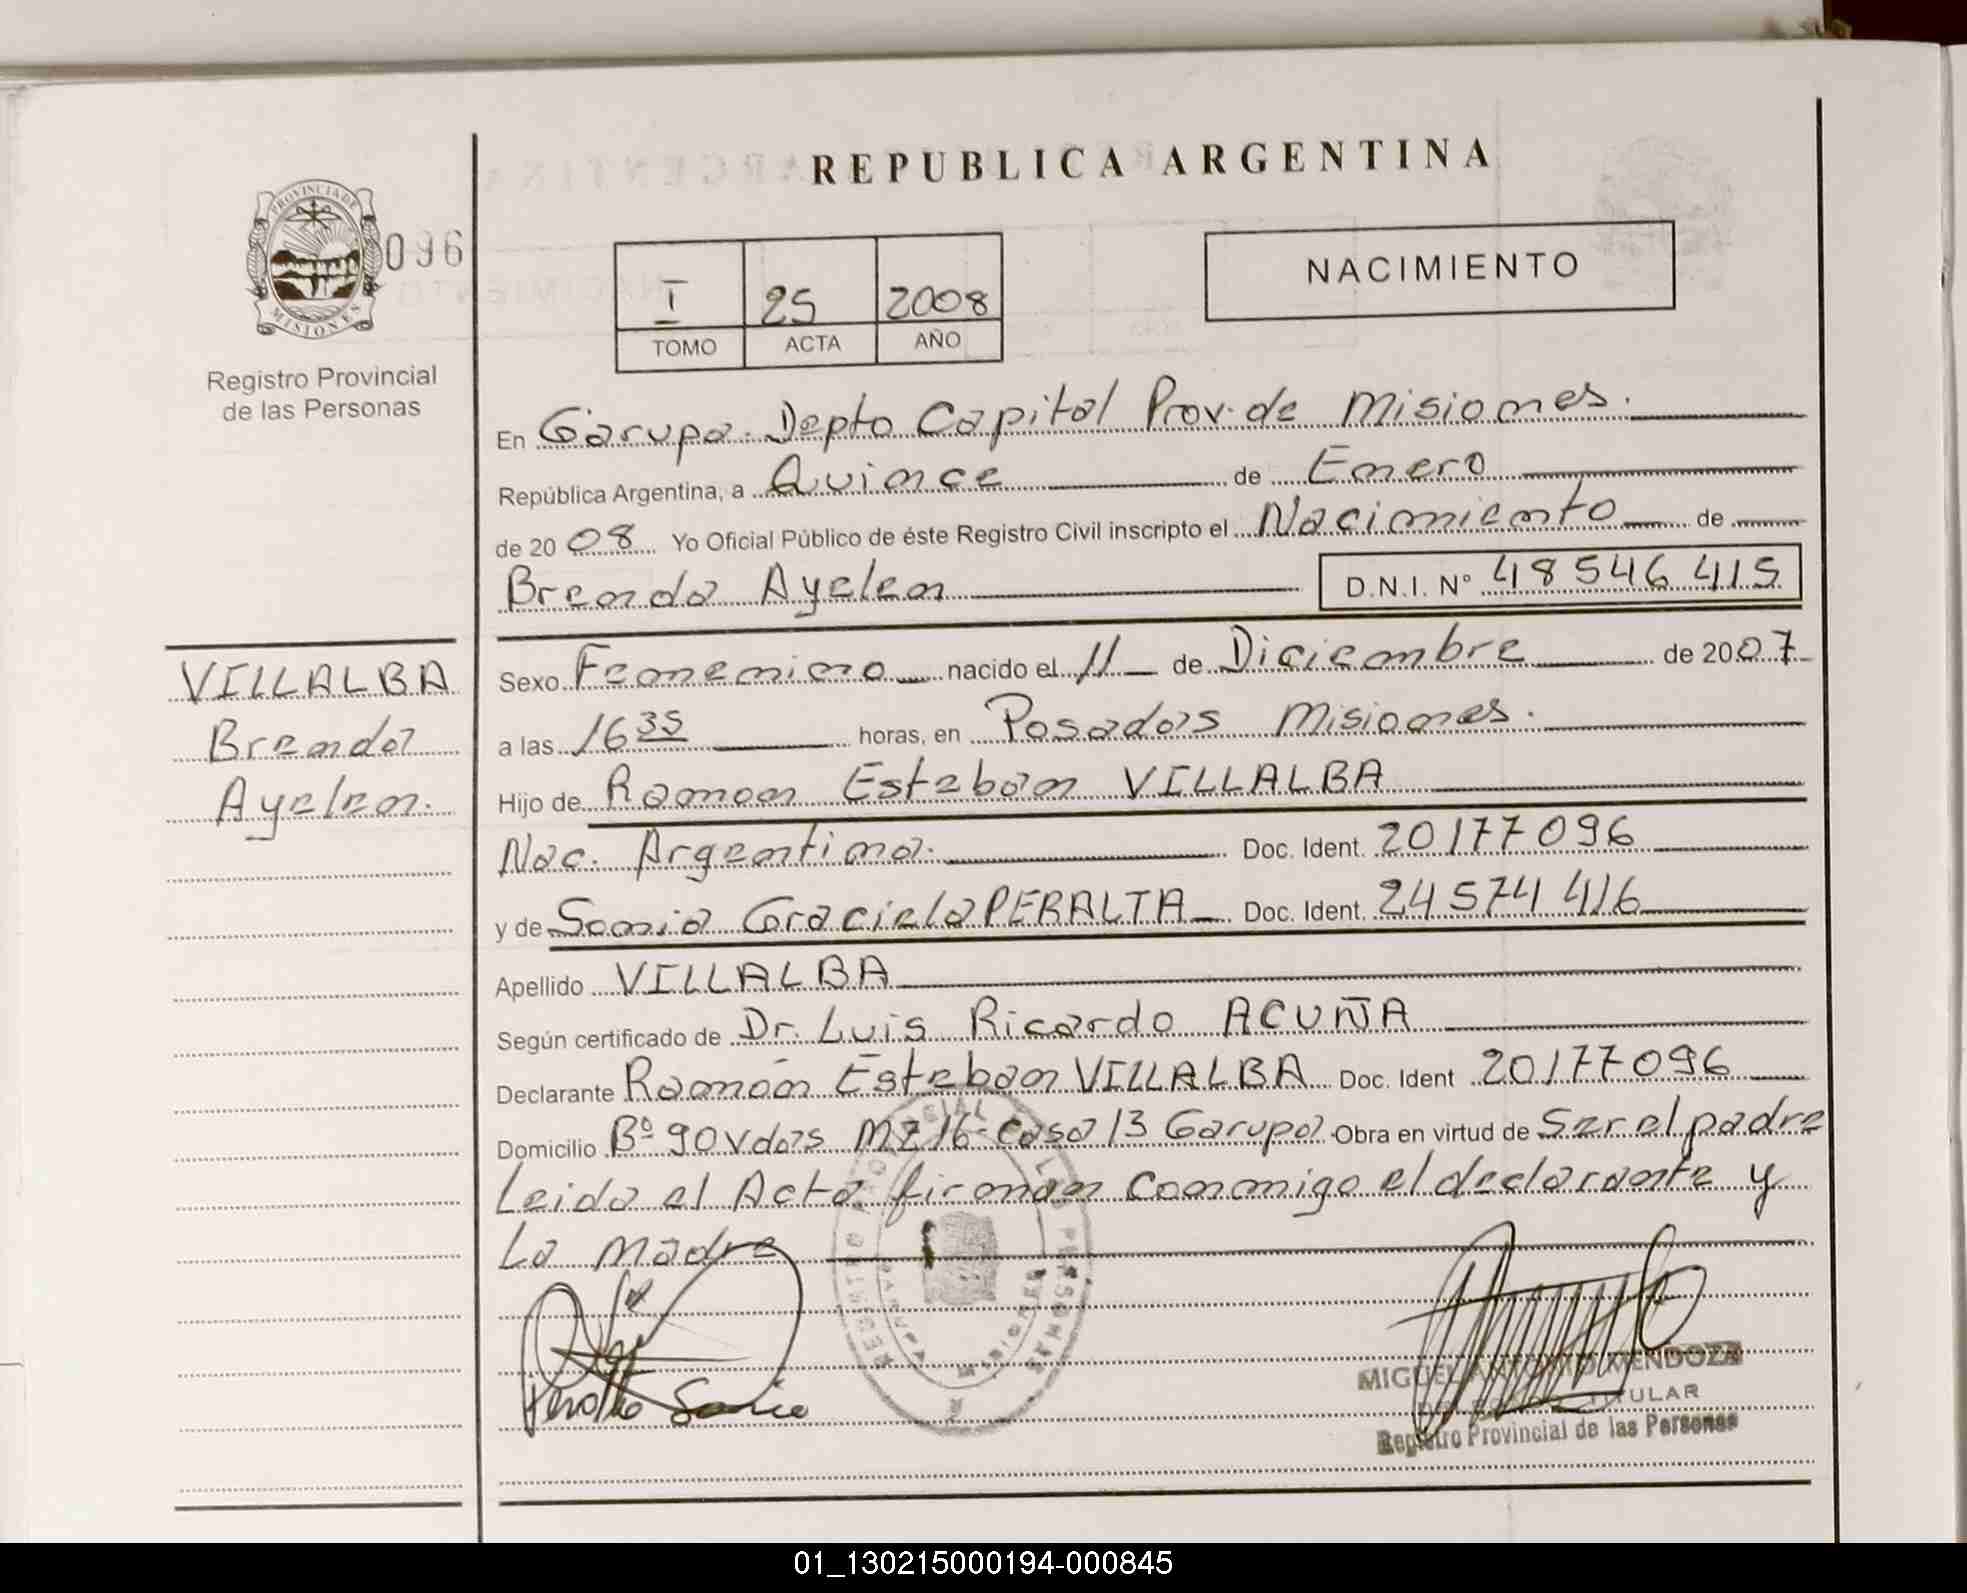 REPUBLICA ARGENTINA
PROVINCIA DE
MISIONES
096
Registro Provincial
de las Personas
I 25 2008
TOMO ACTA AÑO
NACIMIENTO
En Garupa. Depto Capital Prov. de Misiones.
República Argentina, a Quince de Enero
de 2008 Yo Oficial Público de éste Registro Civil inscripto el Nacimiento de
Brenda Ayelen D.N.I. Nº 48 546 415
VILLALBA
Brenda
Ayelen.
Sexo Femenino nacido el 11 de Diciembre de 2007
a las 16 35 horas, en Posadas Misiones.
Hijo de Ramon Esteban VILLALBA
Nac. Argentina. Doc. Ident. 20177096
y de Sonia Graciela PERALTA Doc. Ident. 24 574 416
Apellido VILLALBA
Según certificado de Dr. Luis Ricardo ACUÑA
Declarante Ramón Esteban VILLALBA Doc. Ident 20177096
Domicilio Bº 90 Vdas Mz 16 - Casa 13 Garupa. Obra en virtud de Ser el padre
Leida el Acta firman Conmigo el declarante y
La madre
Peralta Sonia
REGISTRO PROVINCIAL DE LAS PERSONAS
MISIONES
MIGUEL ANTONIO MENDOZA
TITULAR
Registro Provincial de las Personas
01_130215000194-000845